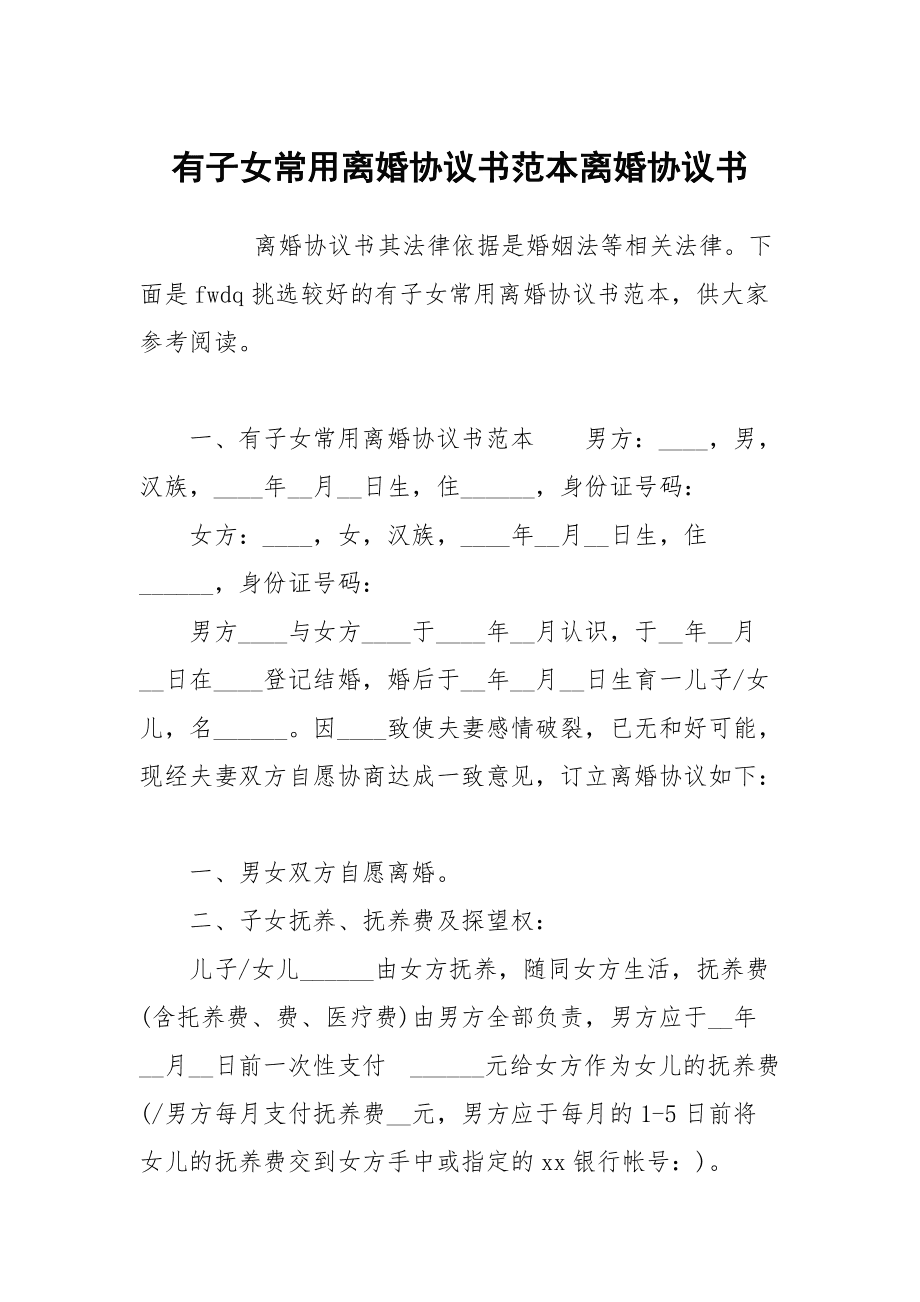 有子女常用离婚协议书范本离婚协议书
离婚协议书其法律依据是婚姻法等相关法律。下
面是fwdq挑选较好的有子女常用离婚协议书范本，供大家
参考阅读。
一、有子女常用离婚协议书范本　　男方：____，男，
汉族，____年__月__日生，住______，身份证号码：
女方：____，女，汉族，____年__月__日生，住
______，身份证号码：
男方____与女方____于____年__月认识，于__年__月
__日在____登记结婚，婚后于__年__月__日生育一儿子/女
儿，名______。因____致使夫妻感情破裂，已无和好可能，
现经夫妻双方自愿协商达成一致意见，订立离婚协议如下：
一、男女双方自愿离婚。
二、子女抚养、抚养费及探望权：
儿子/女儿______由女方抚养，随同女方生活，抚养费
(含托养费、费、医疗费)由男方全部负责，男方应于__年
__月__日前一次性支付　______元给女方作为女儿的抚养费
(/男方每月支付抚养费__元，男方应于每月的1-5日前将
女儿的抚养费交到女方手中或指定的xx银行帐号：)。